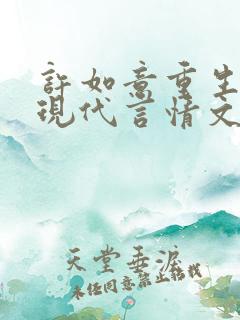 許如意重生
現代言情文
天堂垂淚
未經同意禁止轉載